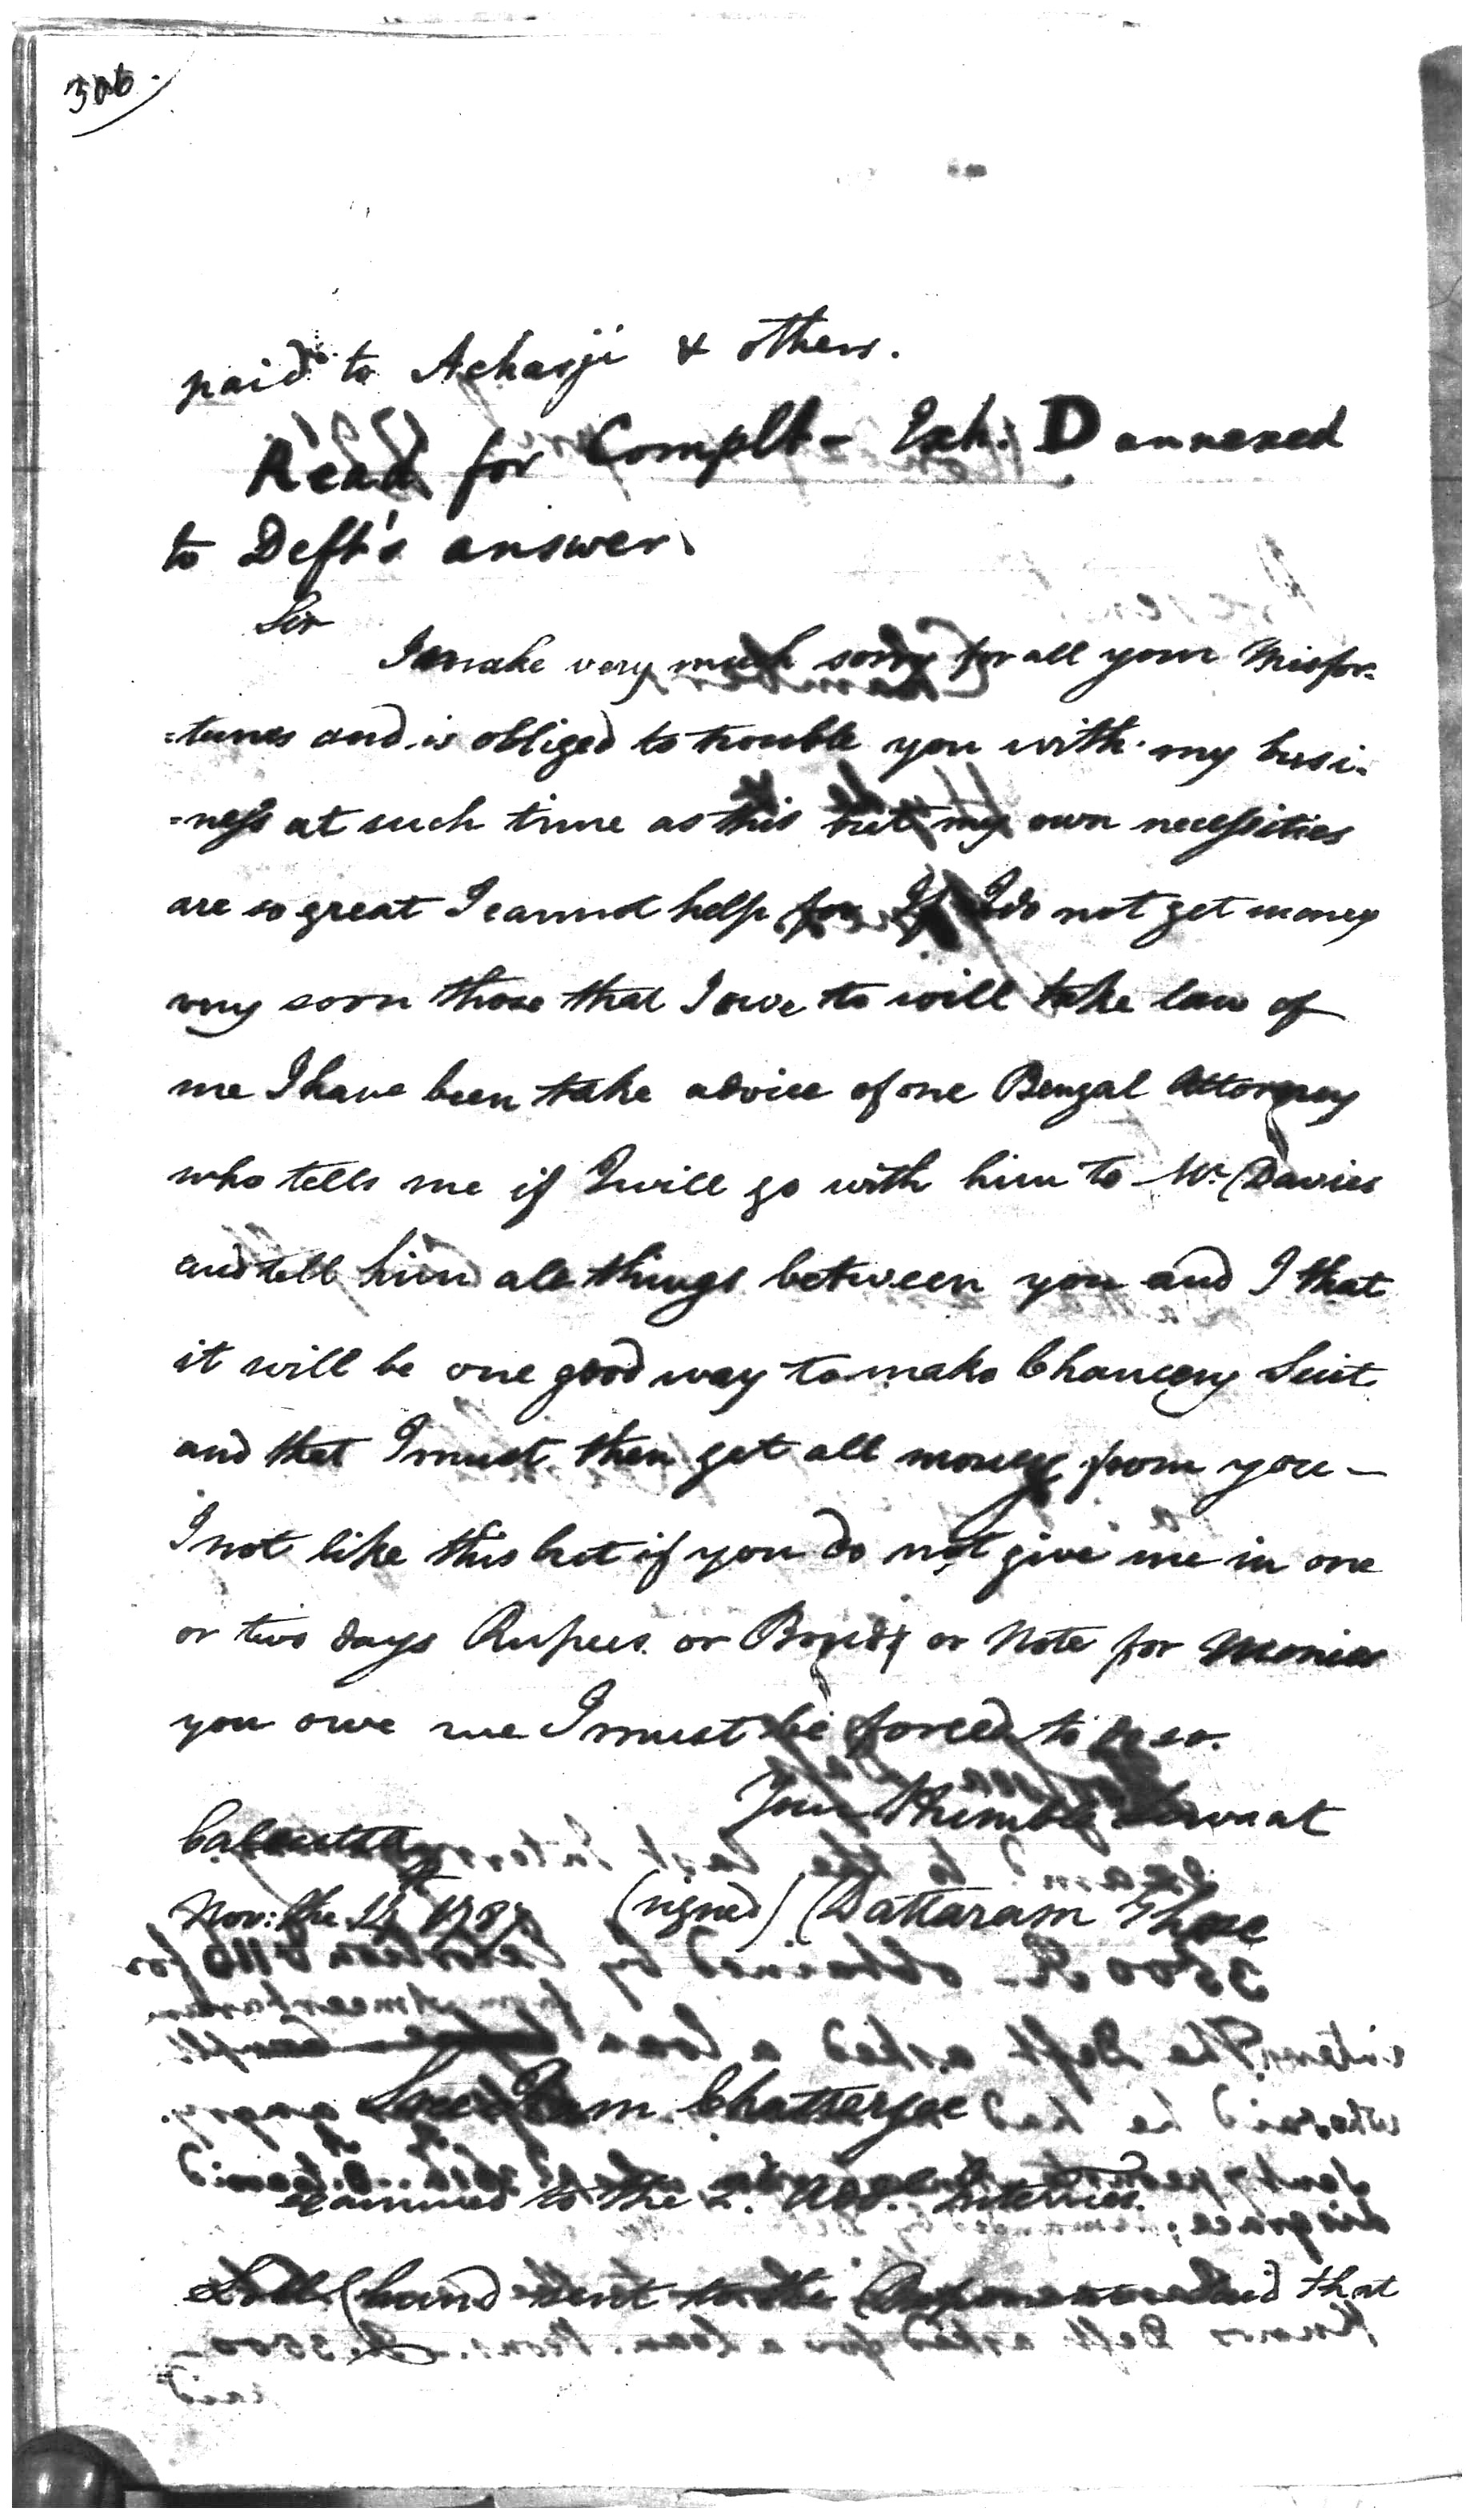 306.
paid to Acharji & others.
Read for Complt - Exh. D annexed
to Deft's answer.
Sir
I make very much sorry for all your Misfor-
=tunes and is obliged to trouble you with my busi-
=ness at such time as this but my own necessities
are so great I cannot help for If I do not get money
very soon those that I owe to will take law of
me I have been take advice of one Bengal Attorney
who tells me if I will go with him to Mr. Davies
and tell him all things between you and I that
it will be one good way to make Chancery Suit
and that I must then get all money from you —
I not like this but if you do not give me in one
or two days Rupees or Bond or Note for Monies
you owe me I must be forced to do so.
Your Humble Servant
Calcutta
Nov: the (signed) Dattaram Ghose
Ram Chatterjee
examined to the 2. Add. Interries.
Lall Chund sent to the that